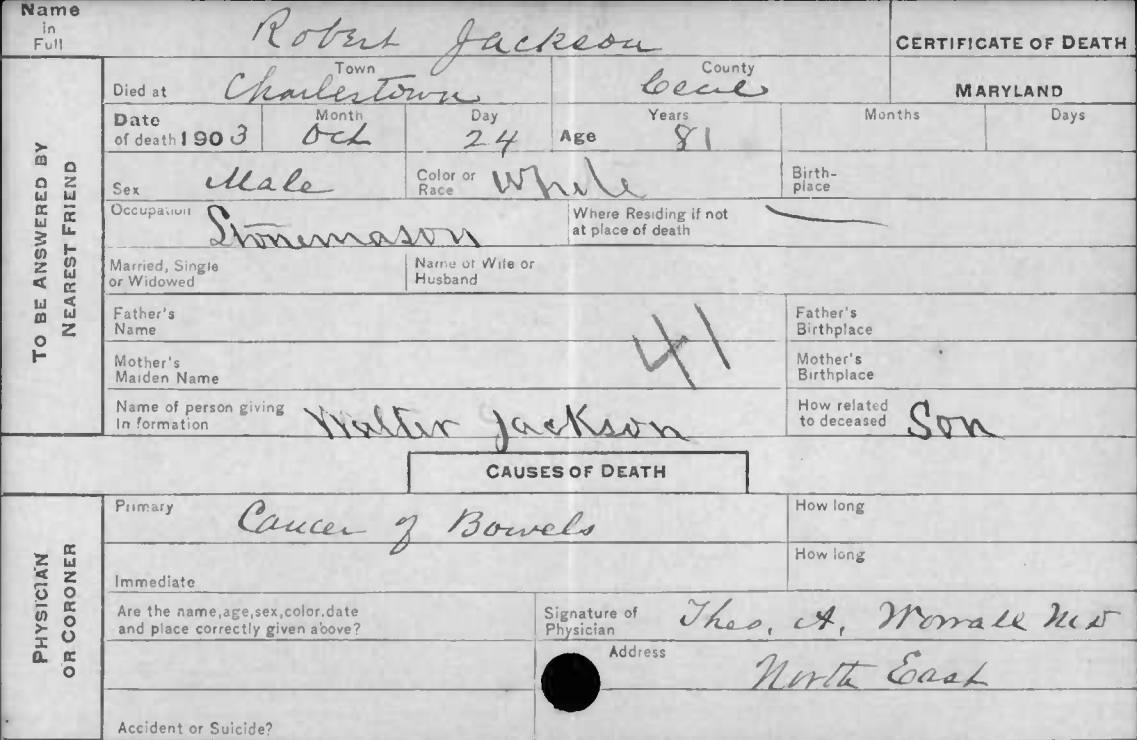 Name in Full Robert Jackson CERTIFICATE OF DEATH
Died at Town Charlestown County Cecil MARYLAND
Date of death 1903 Month Oct Day 24 Age Years 81 Months Days
Sex Male Color or Race White Birth-place
Occupation Stonemason Where Residing if not at place of death —
Married, Single or Widowed Name of Wife or Husband
Father's Name 41 Father's Birthplace
Mother's Maiden Name Mother's Birthplace
Name of person giving In formation Walter Jackson How related to deceased Son
TO BE ANSWERED BY NEAREST FRIEND
CAUSES OF DEATH
Primary Cancer of Bowels How long
Immediate How long
Are the name,age,sex,color,date and place correctly given above? Signature of Physician Theo. A. Worrall MD
Address North East
Accident or Suicide?
PHYSICIAN OR CORONER